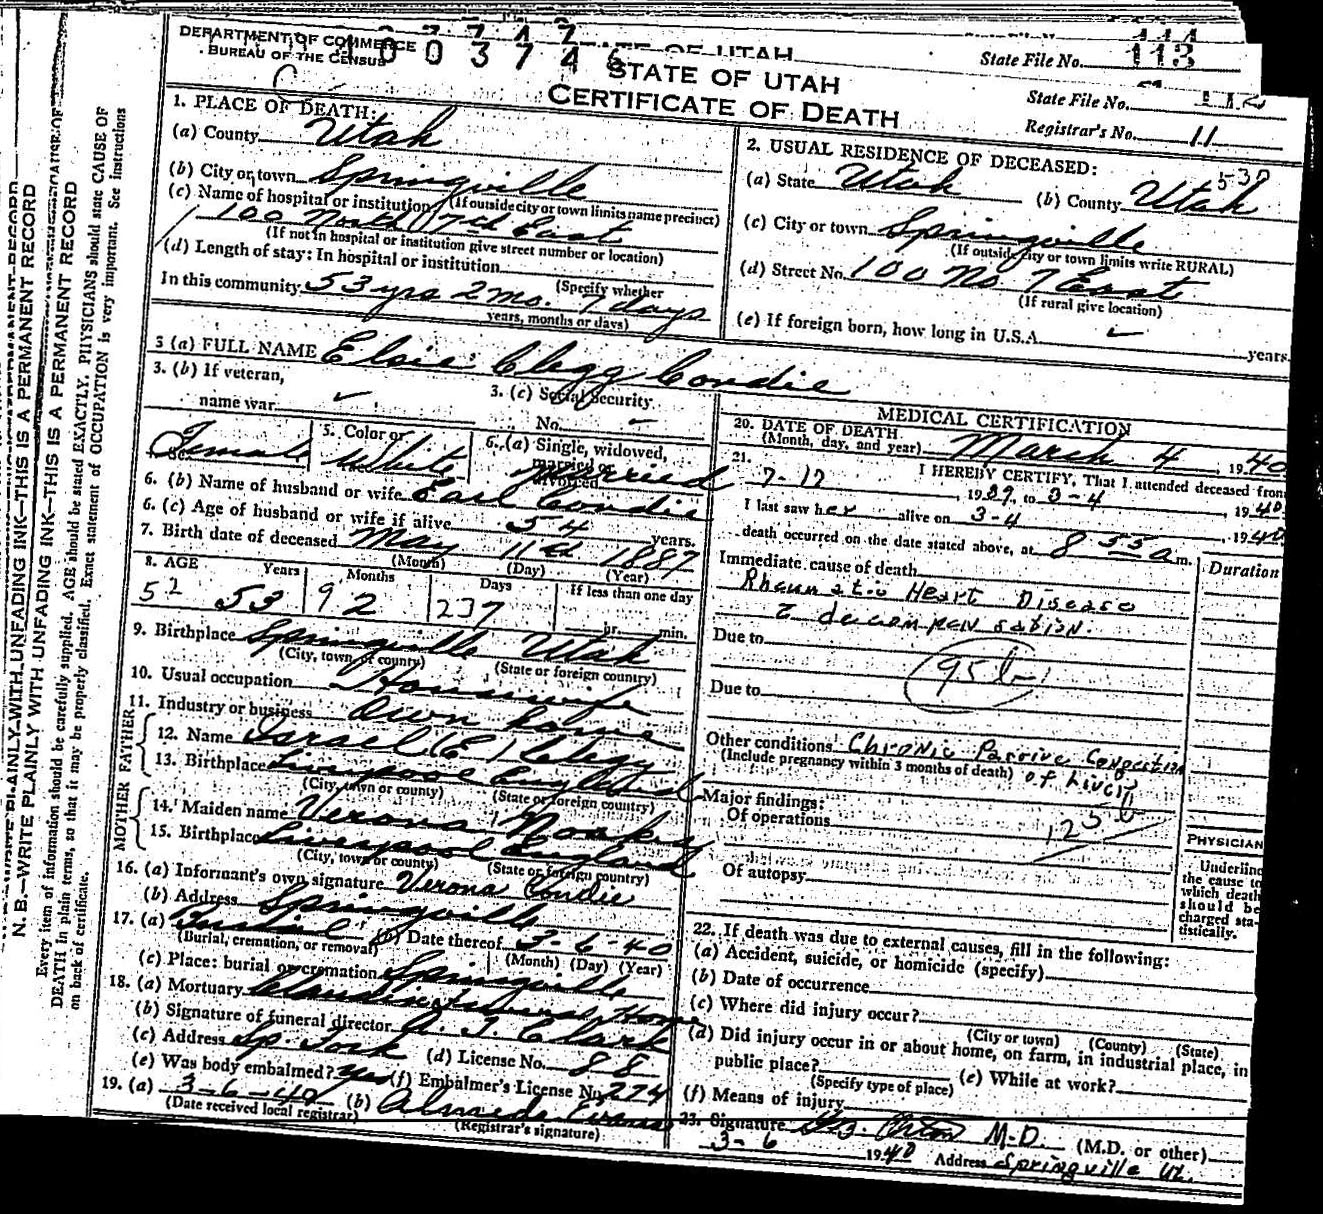 DEPARTMENT OF COMMERCE
BUREAU OF THE CENSUS
STATE OF UTAH
CERTIFICATE OF DEATH
State File No. 113
State File No. 112
Registrar's No. 11
N. B.—WRITE PLAINLY WITH UNFADING INK—THIS IS A PERMANENT RECORD
Every item of information should be carefully supplied. AGE should be stated EXACTLY. PHYSICIANS should state CAUSE OF
DEATH in plain terms, so that it may be properly classified. Exact statement of OCCUPATION is very important. See Instructions
on back of certificate.
1. PLACE OF DEATH:
(a) County Utah
(b) City or town Springville
(If outside city or town limits name precinct)
(c) Name of hospital or institution
100 North 7th East
(If not in hospital or institution give street number or location)
(d) Length of stay: In hospital or institution
(Specify whether
In this community 53 yrs 2 mo. 7 days
years, months or days)
2. USUAL RESIDENCE OF DECEASED:
(a) State Utah (b) County Utah
(c) City or town Springville
(If outside city or town limits write RURAL)
(d) Street No. 100 No 7 East
(If rural give location)
(e) If foreign born, how long in U.S.A. years.
3 (a) FULL NAME Elsie Clegg Condie
3. (b) If veteran,
name war
3. (c) Social Security
No.
Female
5. Color or
White
6. (a) Single, widowed,
married or
divorced Married
6. (b) Name of husband or wife Earl Condie
6. (c) Age of husband or wife if alive 54 years.
7. Birth date of deceased May 11th 1887
(Month) (Day) (Year)
8. AGE Years Months Days If less than one day
52 53 9 2 23 7 hr. min.
9. Birthplace Springville Utah
(City, town, or county) (State or foreign country)
10. Usual occupation Housewife
11. Industry or business Own home
FATHER
12. Name Israel (E) Clegg
13. Birthplace Liverpool England
(City, town or county) (State or foreign country)
MOTHER
14. Maiden name Verona Noakes
15. Birthplace Liverpool England
(City, town or county) (State or foreign country)
16. (a) Informant's own signature Verona Condie
(b) Address Springville
17. (a) Burial (b) Date thereof 3-6-40
(Burial, cremation, or removal) (Month) (Day) (Year)
(c) Place: burial or cremation Springville
18. (a) Mortuary Claudin Funeral Home
(b) Signature of funeral director A. Y. Clark
(c) Address Sp. Fork (d) License No. 88
(e) Was body embalmed? yes (f) Embalmer's License No. 274
19. (a) 3-6-40 (b) Almeda Evans
(Date received local registrar) (Registrar's signature)
MEDICAL CERTIFICATION
20. DATE OF DEATH
(Month, day, and year) March 4, 1940
21. I HEREBY CERTIFY, That I attended deceased from
7-17, 1939, to 3-4, 1940
I last saw her alive on 3-4, 1940
death occurred on the date stated above, at 8 55 a m.
Immediate cause of death Duration
Rheumatic Heart Disease
c decompensation.
Due to
95 b
Due to
Other conditions Chronic Passive Congestion
(Include pregnancy within 3 months of death) of Liver
Major findings:
Of operations 125 b
Of autopsy
PHYSICIAN
Underline
the cause to
which death
should be
charged sta-
tistically.
22. If death was due to external causes, fill in the following:
(a) Accident, suicide, or homicide (specify)
(b) Date of occurrence
(c) Where did injury occur?
(City or town) (County) (State)
(d) Did injury occur in or about home, on farm, in industrial place, in
public place? (e) While at work?
(Specify type of place)
(f) Means of injury
23. Signature Orton M.D. (M.D. or other)
3-6 1940 Address Springville Ut.